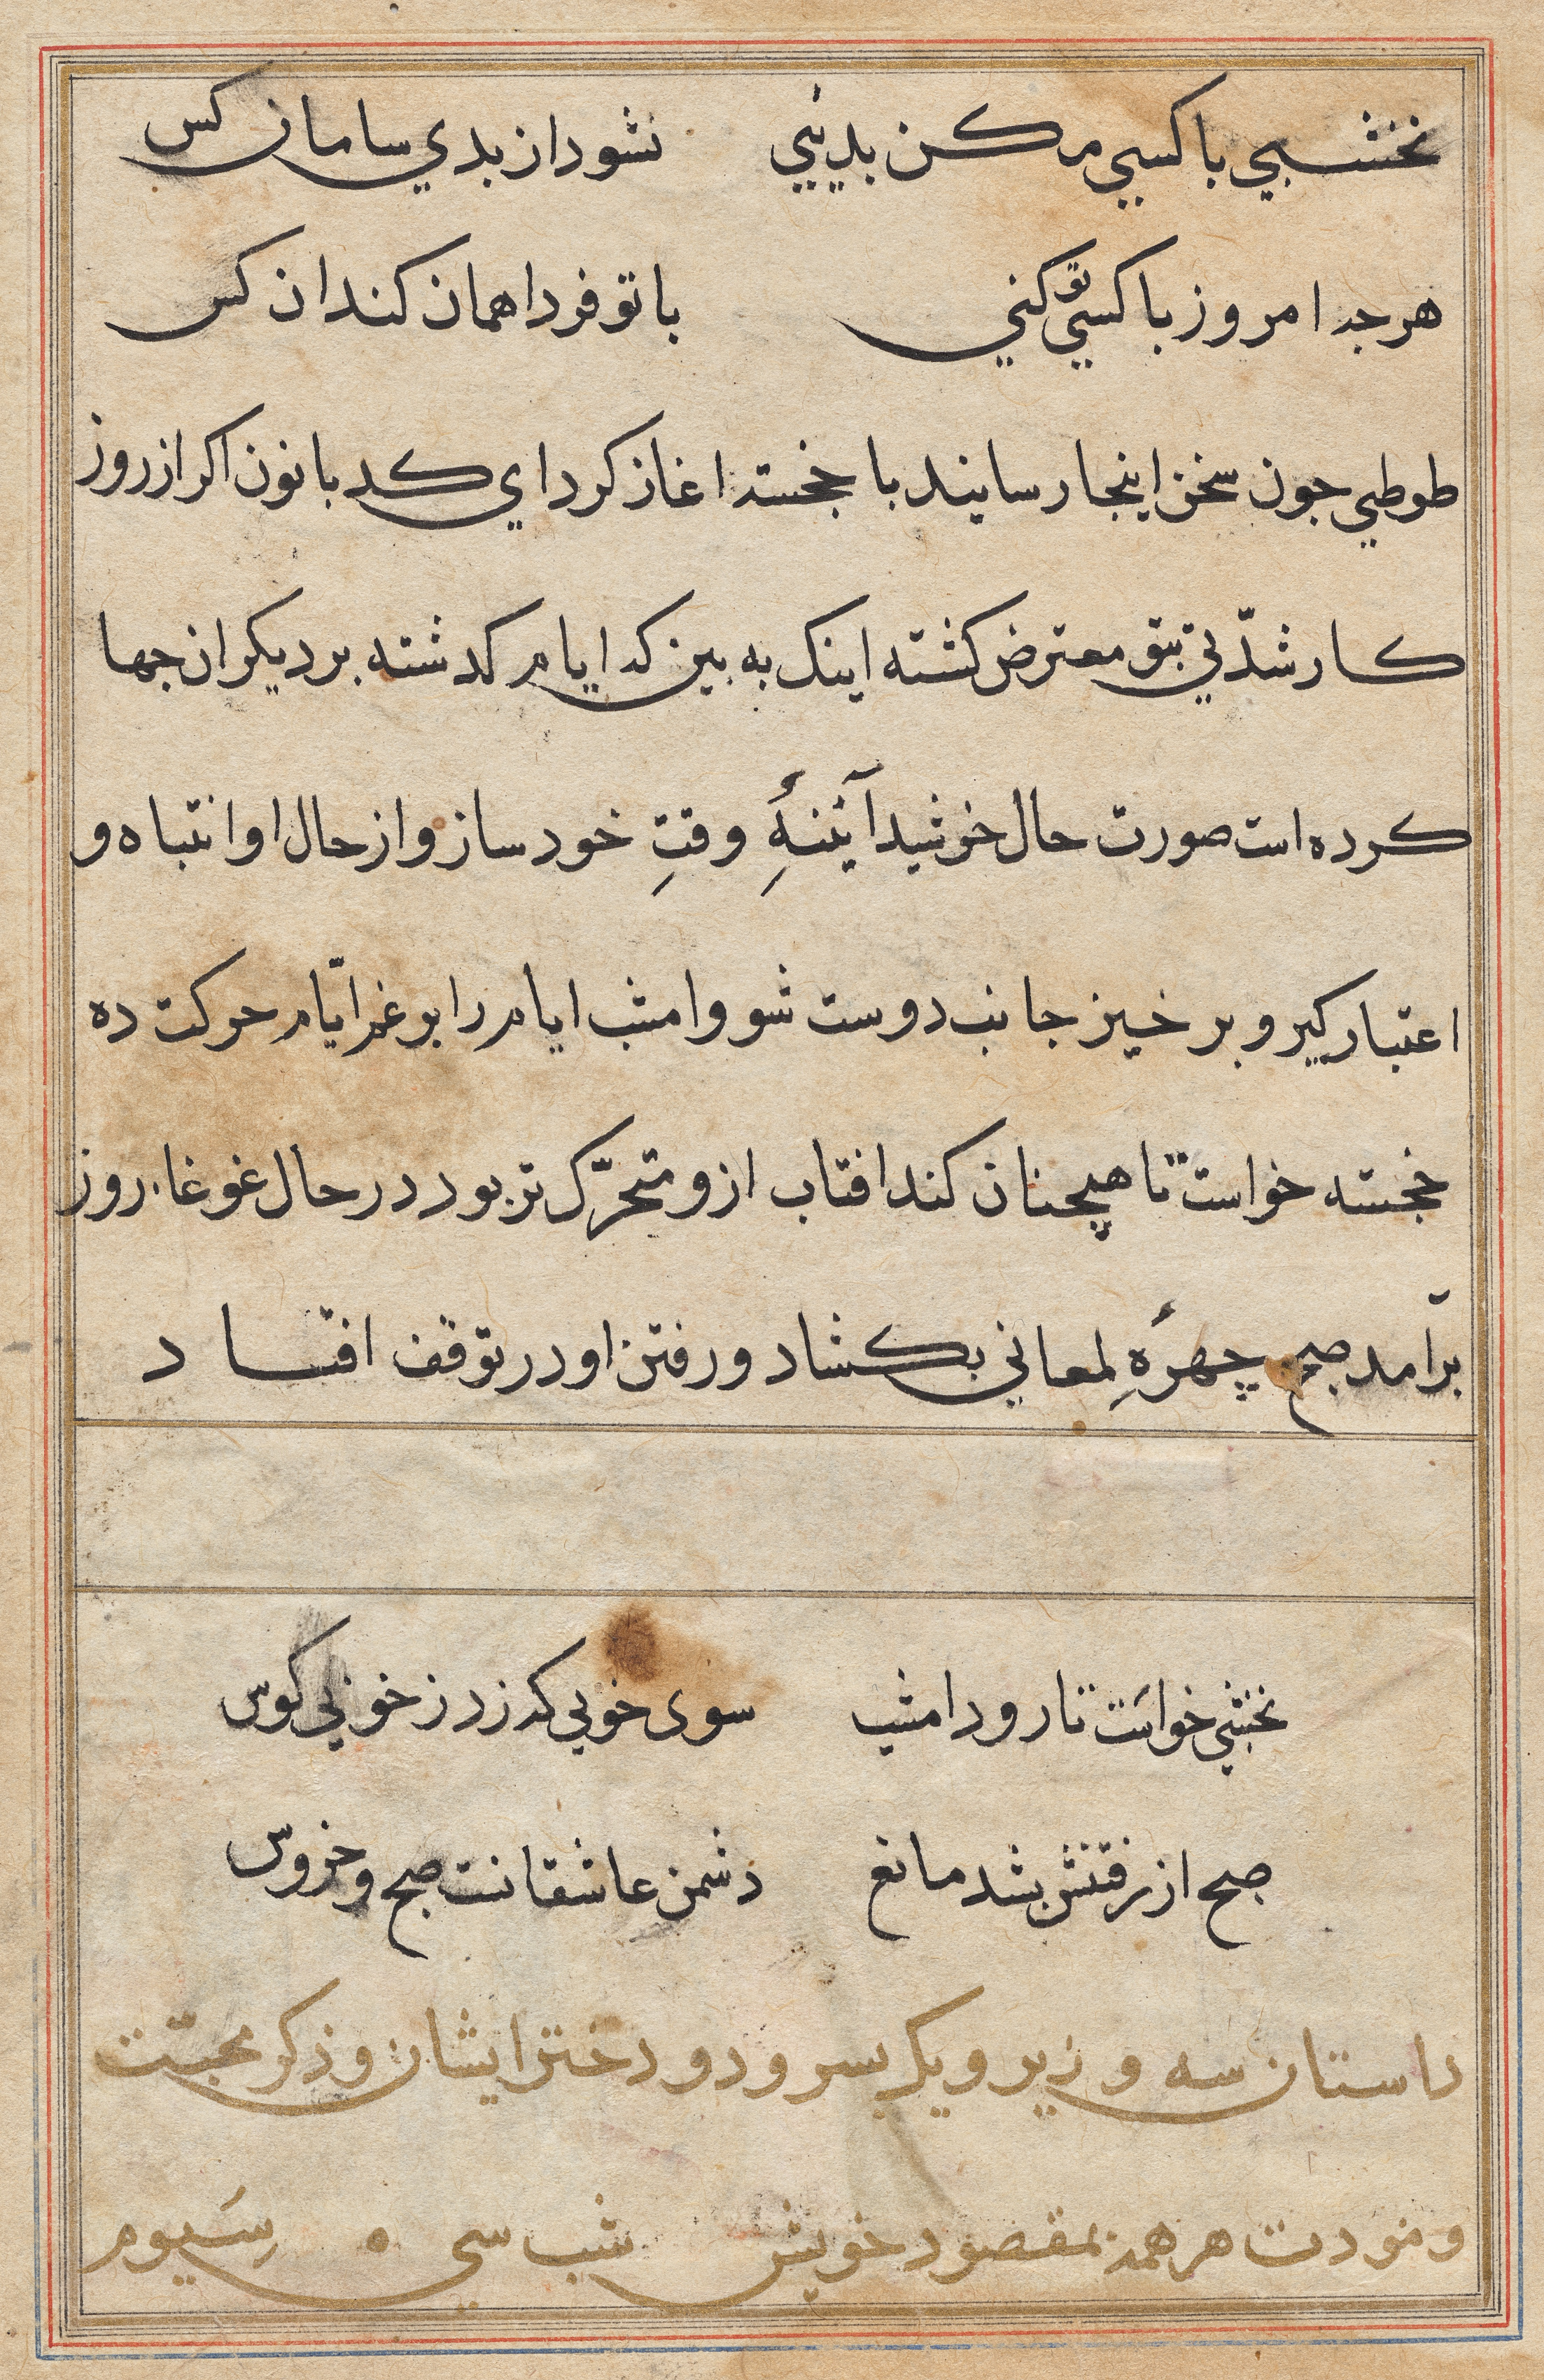 نخشبي با كسي مكن بديي نشود از بدي سامان كس
هرچه امروز با كسي تو كني با تو فردا همان كند ان كس
طوطي جون سخن اينجا رسانيد با خجسته اغاز كرد اي كدبانون اكر از روز
كار شدّتي بتو معترض كشته اينك به بين كه ايام كدشته بر ديكران جها
كرده است صورت حال خوشيد آئينۀِ وقتِ خود ساز و از حال او انتباه و
اعتبار كير و برخيز جانب دوست شو و امشب ايام را بر غم ايّام حركت ده
خجسته خواست تا همچنان كند افتاب ازو متحرّك تر بود در حال غوغاء روز
برآمد صبح چهرۀِ لمعاني بكشاد و رفتن او در توقف افتاد
نخشبي خواست تا رود امشب سوى خوبي كه زد ز خوبي كوس
صبح از رفتنش بشد مانع دشمن عاشقانت صبح و خروس
داستان سه وزير و يك پسر و دو دختر ايشان و ذكر محبّت
و مودت هر همه بمقصود خويش شب سي ه سيوم